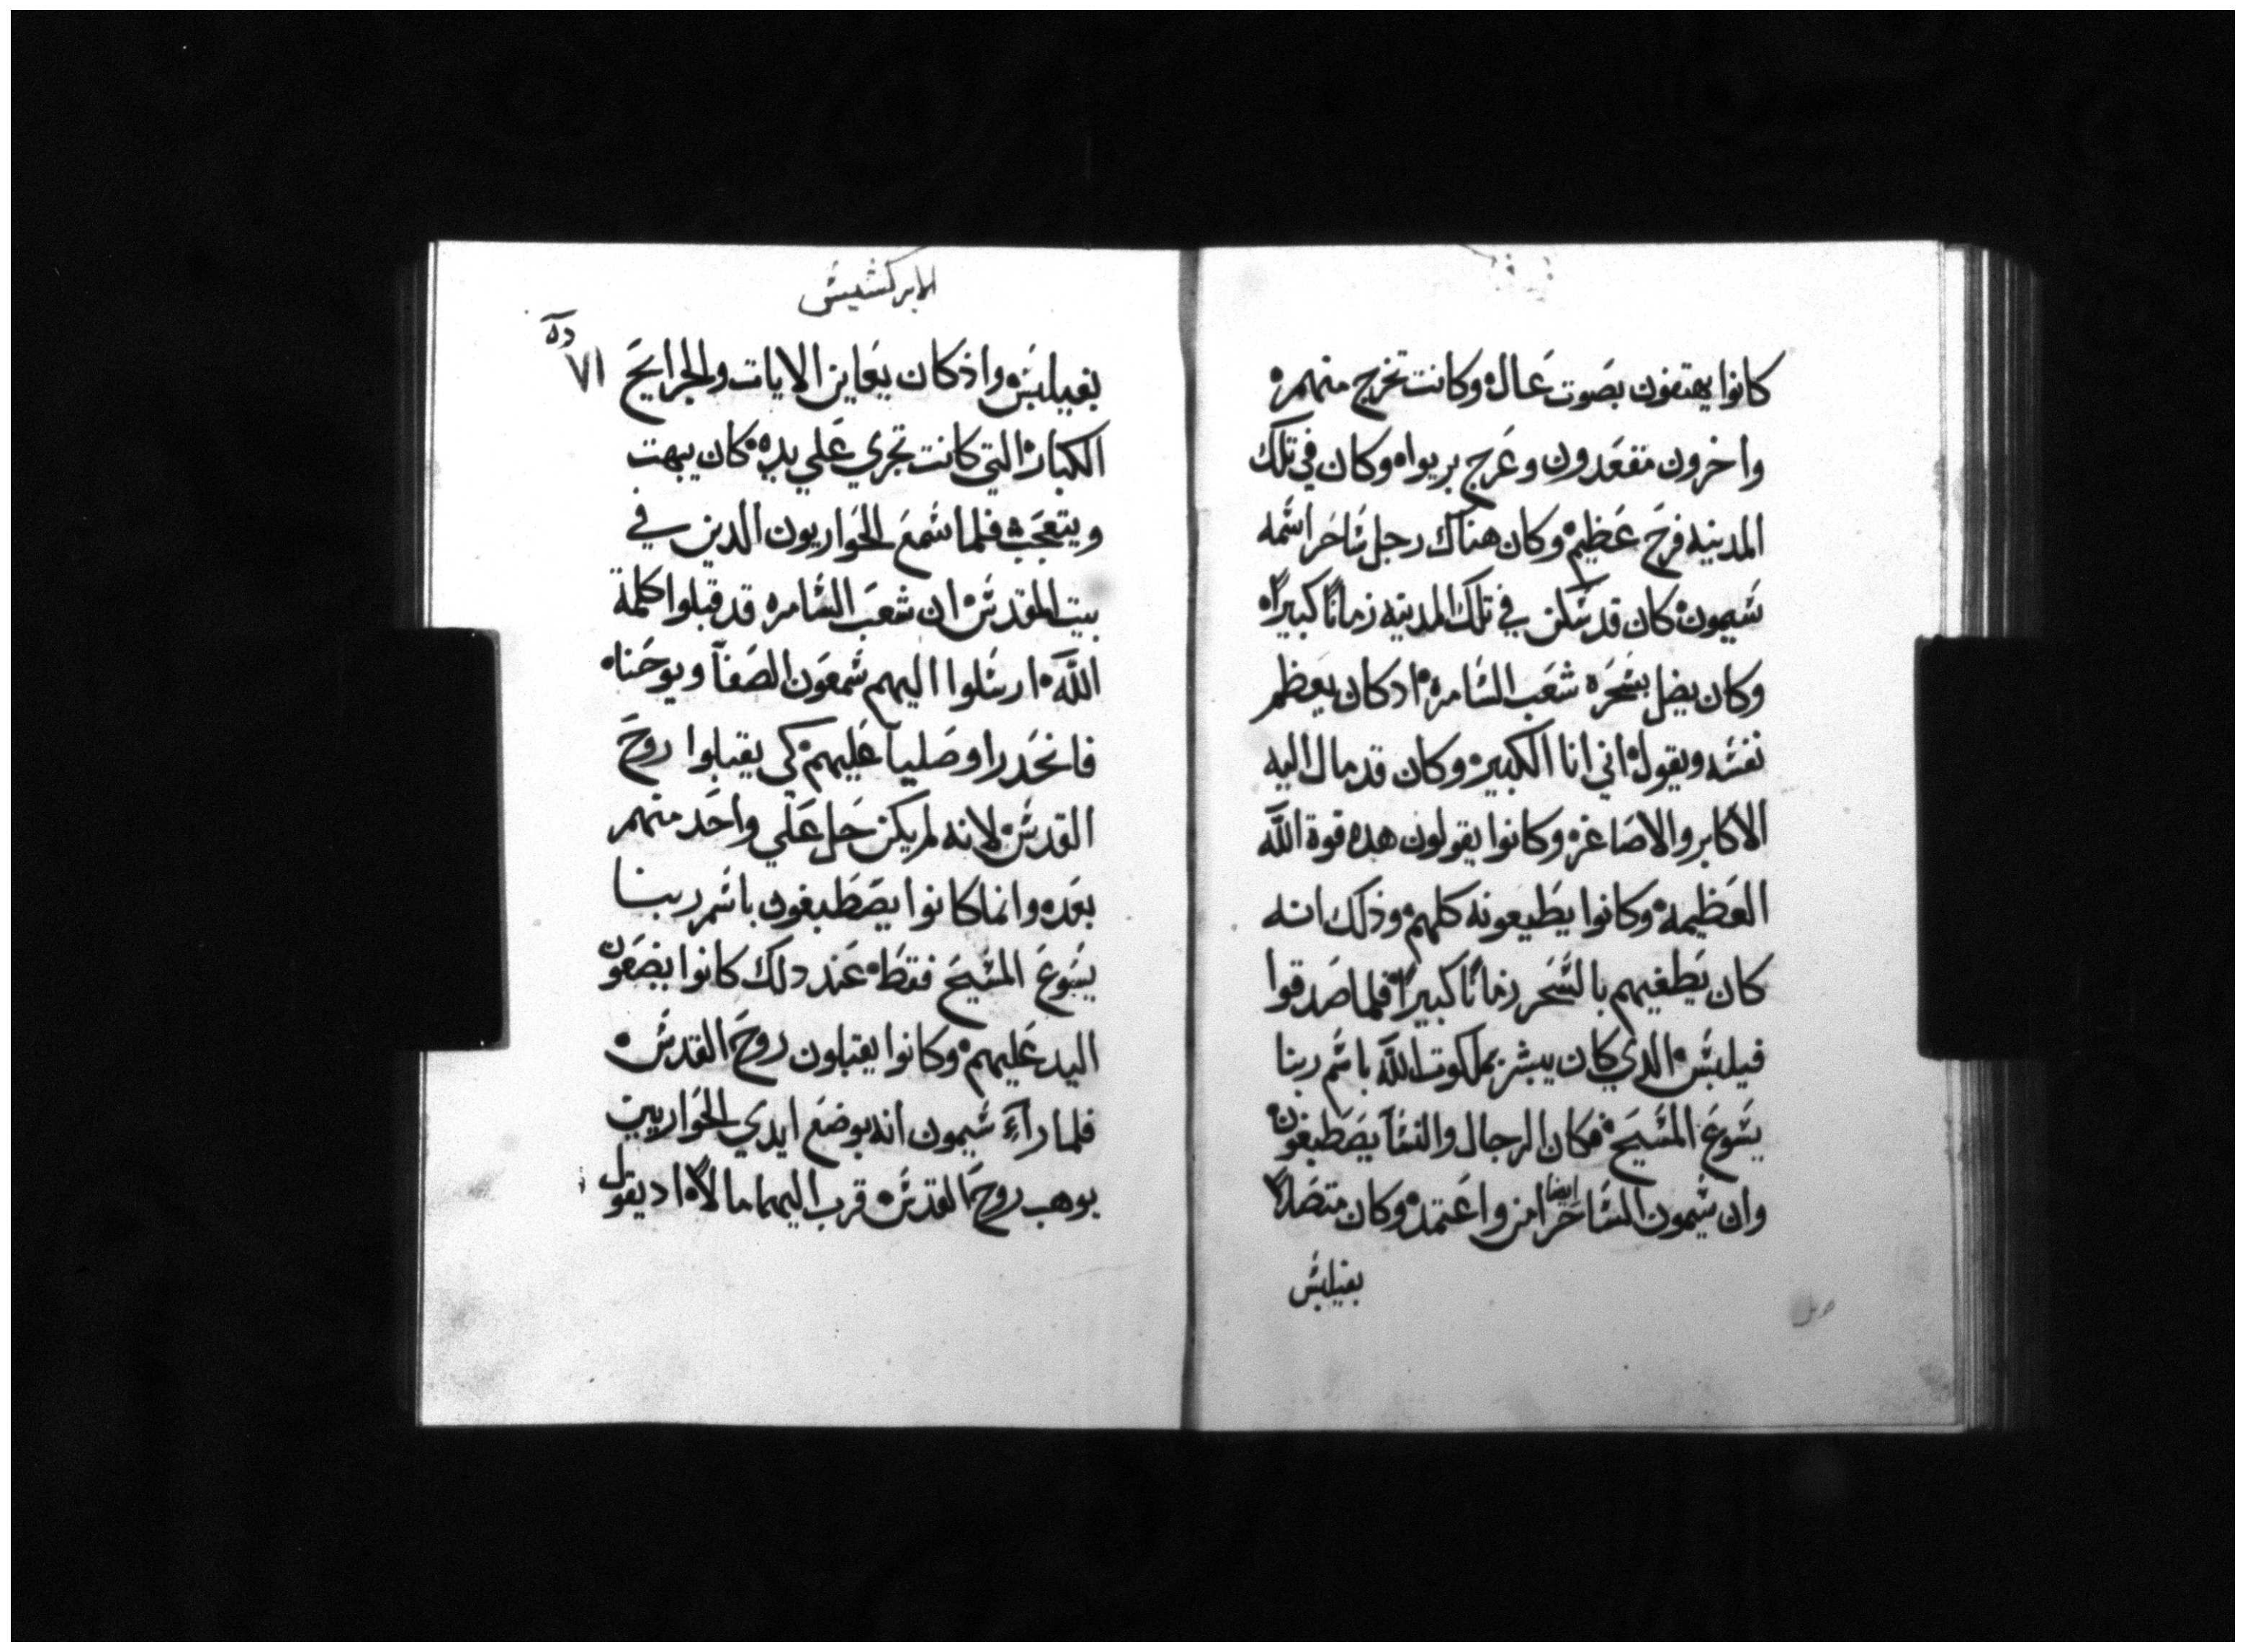 كانوا يهتفون بصوت عال وكانت تخرج منهم
واخرون مقعدون وعرج بريوا وكان في تلك
المدينه فرح عظيم وكان هناك رجل ساحر اسمه
سيمون كان قد سكن في تلك المدينه زمانًا كبيرًا
وكان يضل بسحره شعب السامره ادكان يعظم
نفسه ويقول اني انا الكبير وكان قد مال اليه
الاكابر والاصاغر وكانوا يقولون هده قوة الله
العظيمة وكانوا يطيعونه كلهم وذلك انه
كان يطغيهم بالسحر زمانًا كبيرًا فلما صدقوا
فيلبس الدي كان يبشر بملكوت الله باسم ربنا
يسوع المسيح فكان الرجال والنسآ يصطبغون
وان سيمون الساحر ايضا امن واعتمد وكان متصلًا
بفيلبس
الابركسيس
٧١
بفيلبس واذكان يعاين الايات والجرايح
الكبار التي كانت تجري علي يده كان يبهت
ويتعجب فلما سمع الحواريون الدين في
بيت المقدس ان شعب السامره قد قبلوا كلمة
الله ارسلوا اليهم شمعون الصفآ ويوحنا
فانحدرا وصليا عليهم كي يقبلوا روح
القدس لانه لم يكن حل علي واحد منهم
بعده وانما كانوا يصطبغون باسم ربنا
يسوع المسيح فقط عند دلك كانوا يضعون
اليد عليهم وكانوا يقبلون روح القدس
فلما رآء سيمون انه بوضع ايدي الحواريين
يوهب روح القدس قرب اليهما مالًا اد يقول